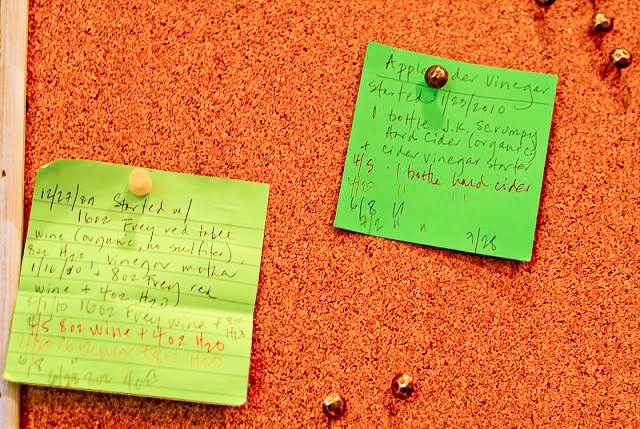 12/27/09 Started w/
16oz Frey red table
wine (organic, no sulfites),
8oz H2O, vinegar mother
1/16/10 + 8oz Frey red
wine + 4oz H2O
/1/10 16oz Frey wine + 8oz H2O
4/5 8oz wine + 4oz H2O
16oz wine + 8oz H2O
6/8 "
8oz 4oz
Apple der Vinegar
Started 1/23/2010
1 bottle J.K. Scrumpy
Hard Cider (organic)
+ cider vinegar starter
4/5 1 bottle hard cider
4/20 " "
6/8 "
7/2 " "
7/28